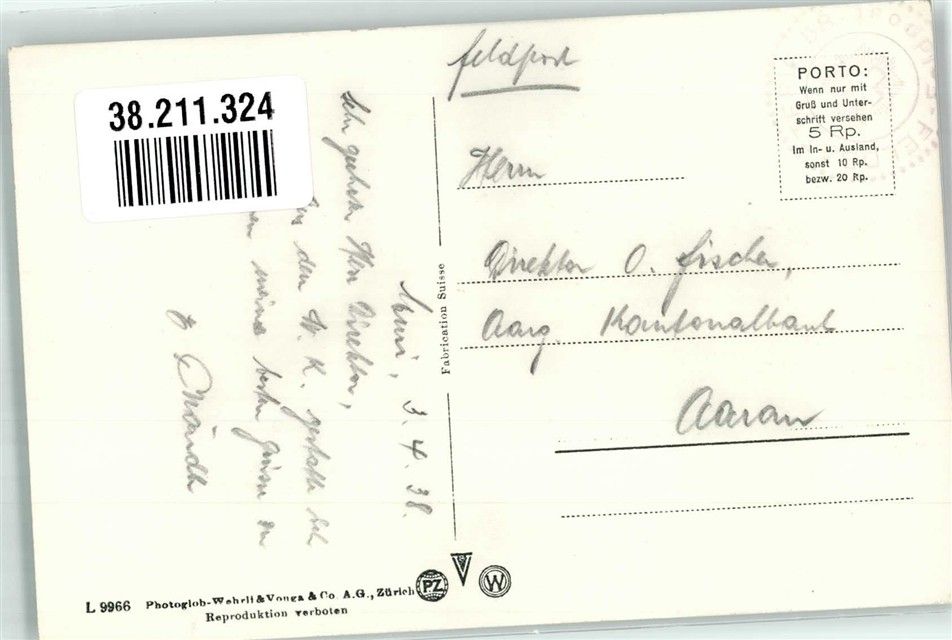 Feldpost
PORTO:
Wenn nur mit
Gruß und Unter-
schrift versehen
5 Rp.
im In- u. Ausland,
sonst 10 Rp.
bezw. 20 Rp.
Herrn
Direktor O. Fischer,
Aarg. Kantonalbank
Aarau
38.211.324
Muri, 3.4.38.
Sehr geehrter Herr Direktor,
den W. K. gestatte ich
meine besten Grüsse zu
Fabrication Suisse
PZ
W
L 9966 Photoglob-Wehrli & Vouga & Co. A.G., Zürich
Reproduktion verboten